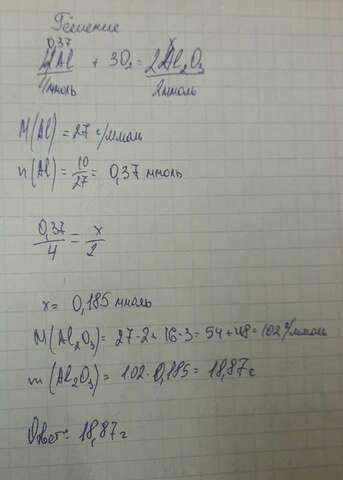 Решение
0,37 x
4Al + 3O₂ = 2Al₂O₃
4моль 2моль
M(Al) = 27 г/моль
n(Al) = 10/27 = 0,37 моль
0,37/4 = x/2
x = 0,185 моль
M(Al₂O₃) = 27·2 + 16·3 = 54 + 48 = 102 г/моль
m(Al₂O₃) = 102·0,185 = 18,87 г
Ответ: 18,87 г